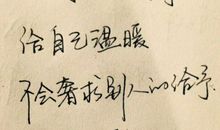 给自己温暖
不会奢求别人的给予